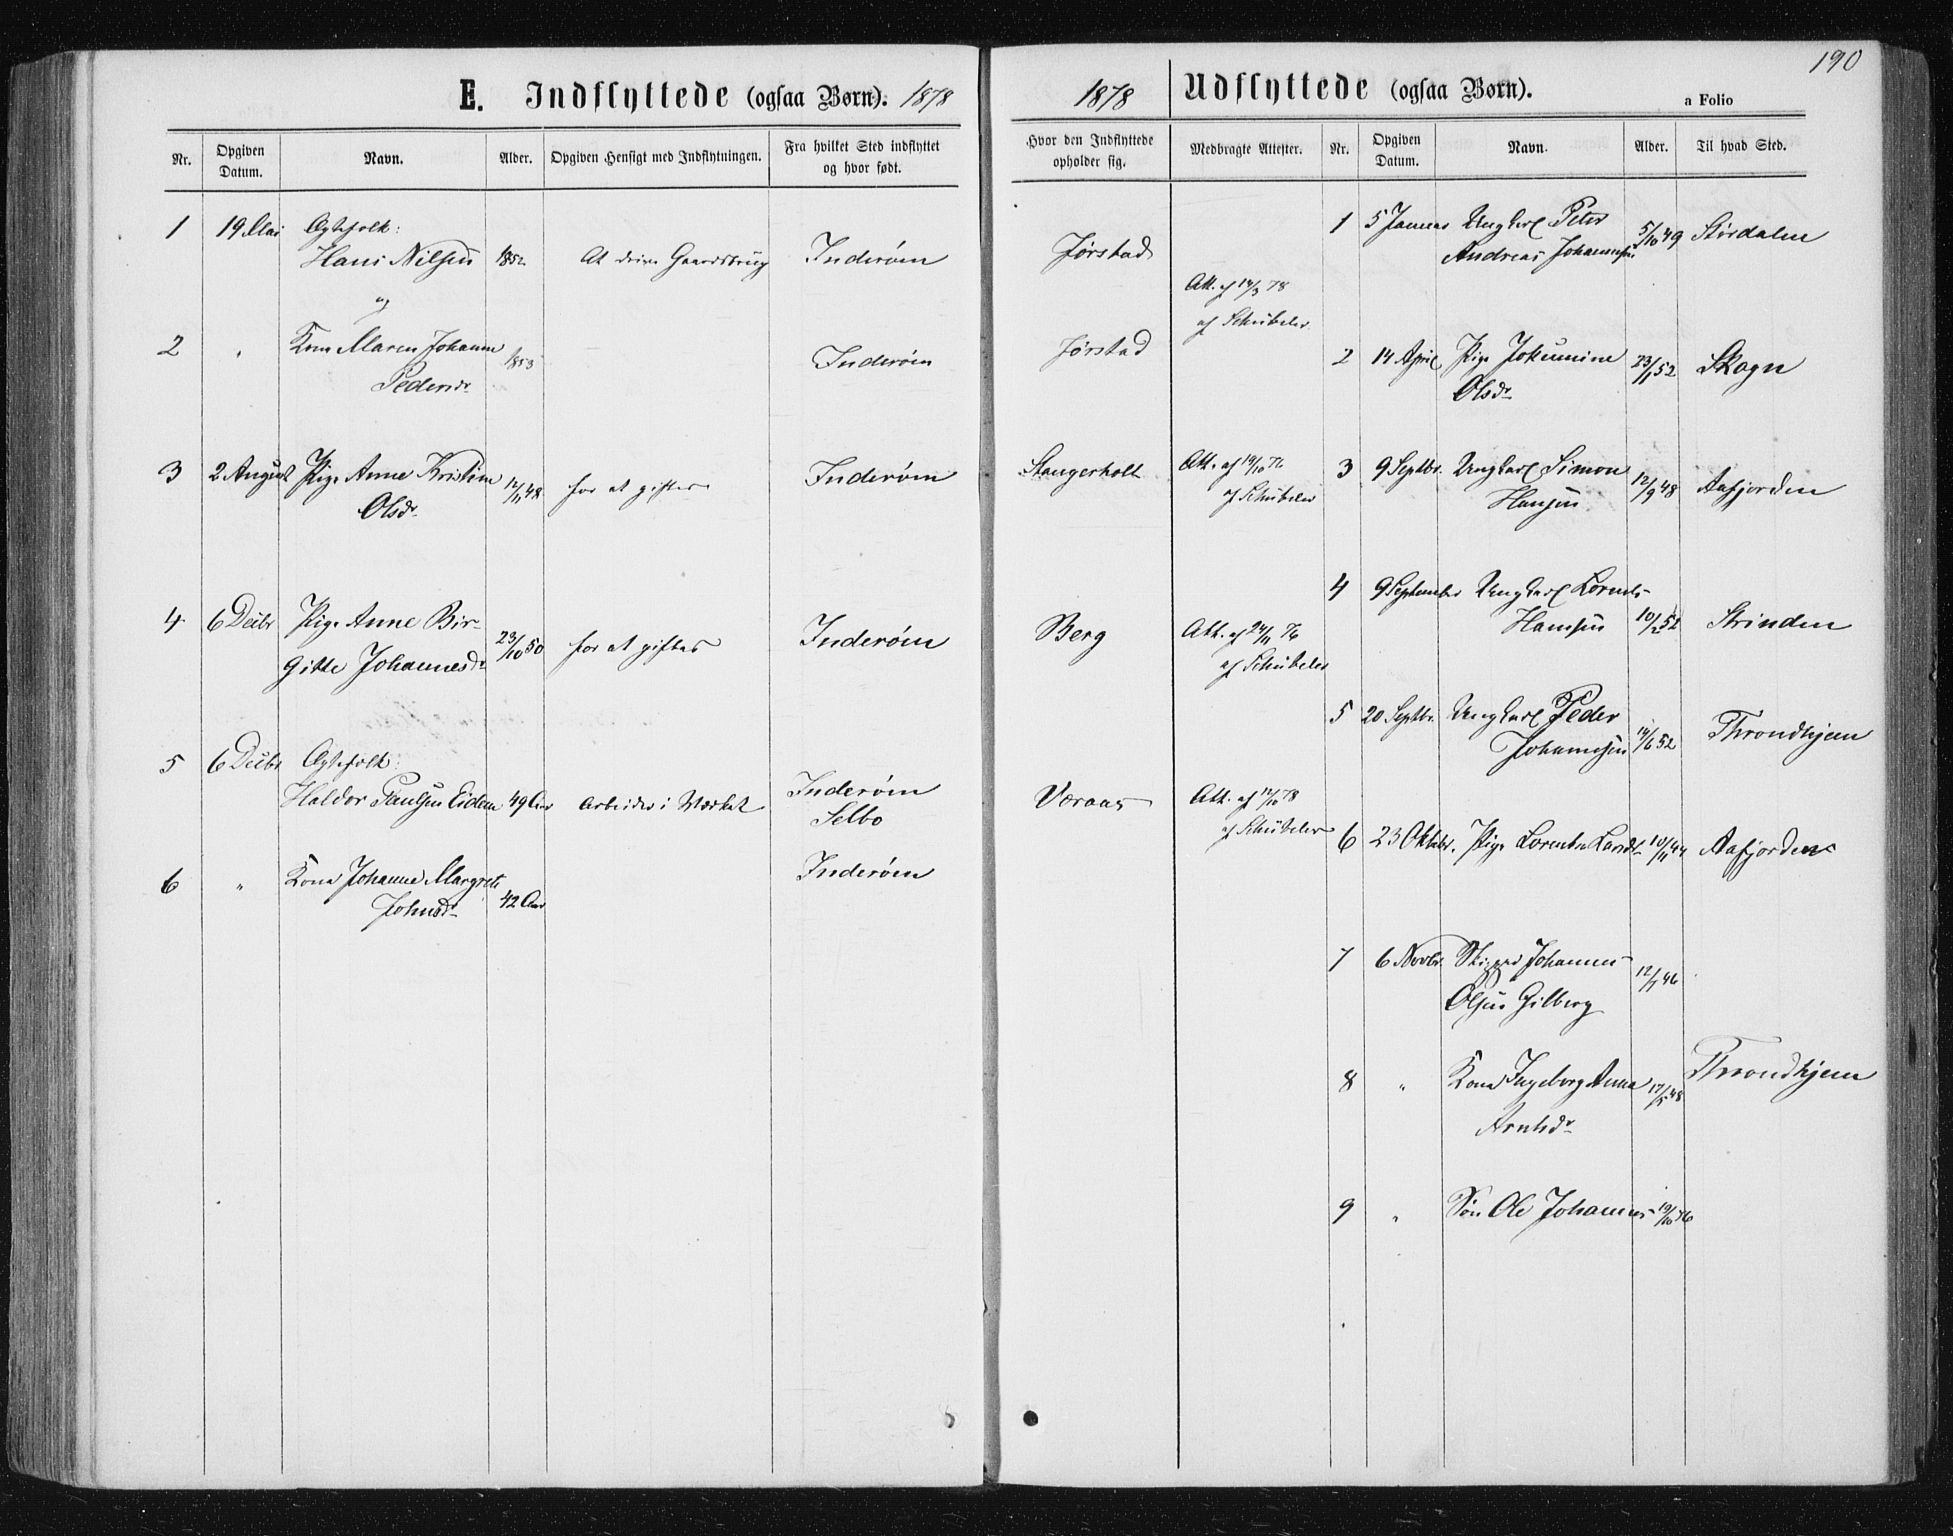 190
E. Indflyttede (ogsaa Børn). 1878
Nr.
Opgiven Datum.
Navn.
Alder.
Opgiven Hensigt med Indflytningen.
Fra hvilket Sted indflyttet
og hvor født.
1 19 Mai Ægtefolk:
Hans Nilsen 1852 At drive Gaardsbrug Inderøen
og
2 " Kone Maren Johanne 1853 Inderøen
Pedersdr
3 2 August Pige Anne Kristine 12/11 48 for at giftes Inderøen
Olsdr
4 6 Decbr Pige Anne Bir-
gitte Johannesdr 23/10 50 for at giftes Inderøen
5 6 Decbr Ægtefolk:
Haldor Paulsen Eidem 49 Aar Arbeider i Værket Inderøen
Selbo
6 " Kone Johanne Margrete 42 Aar Inderøen
Johnsdr
1878 Udflyttede (ogsaa Børn).
a Folio
Hvor den Indflyttede
opholder sig.
Medbragte Attester.
Nr.
Opgiven Datum.
Navn.
Alder.
Til hvad Sted.
Jørstad
Att. af 14/3 78
af Schübeler
Jørstad
Stangerholt Att. af 19/10 76
af Schübeler
Berg Att. af 24/11 76
af Schübeler
Veraas Att. af 12/10 78
af Schübeler
1 5 Januar Ungkarl Peter
Andreas Johannesen 5/10 49 Størdalen
2 14 April Pige Johannine 23/1 52 Skogn
Olsdr
3 9 Septbr. Ungkarl Simon
Hansen 12/9 48 Aafjorden
4 9 September Ungkarl Lornts
Hansen 10/2 52 Strinden
5 20 Septbr. Ungkarl Peder
Johannesen 14/6 52 Throndhjem
6 23 Oktbr. Pige Lorentse Larsdr 10/11 44 Aafjorden
7 6 Novbr. Skipper Johannes
Olsen Gilberg 12/1 46
8 " Kone Ingeborg Anna 17/5 48 Throndhjem
Arntsdr
9 " Søn Ole Johannes 19/10 76